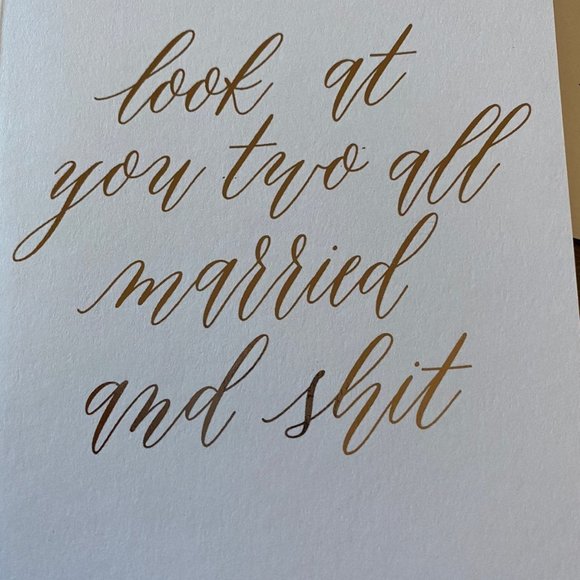 look at
you two all
married
and shit